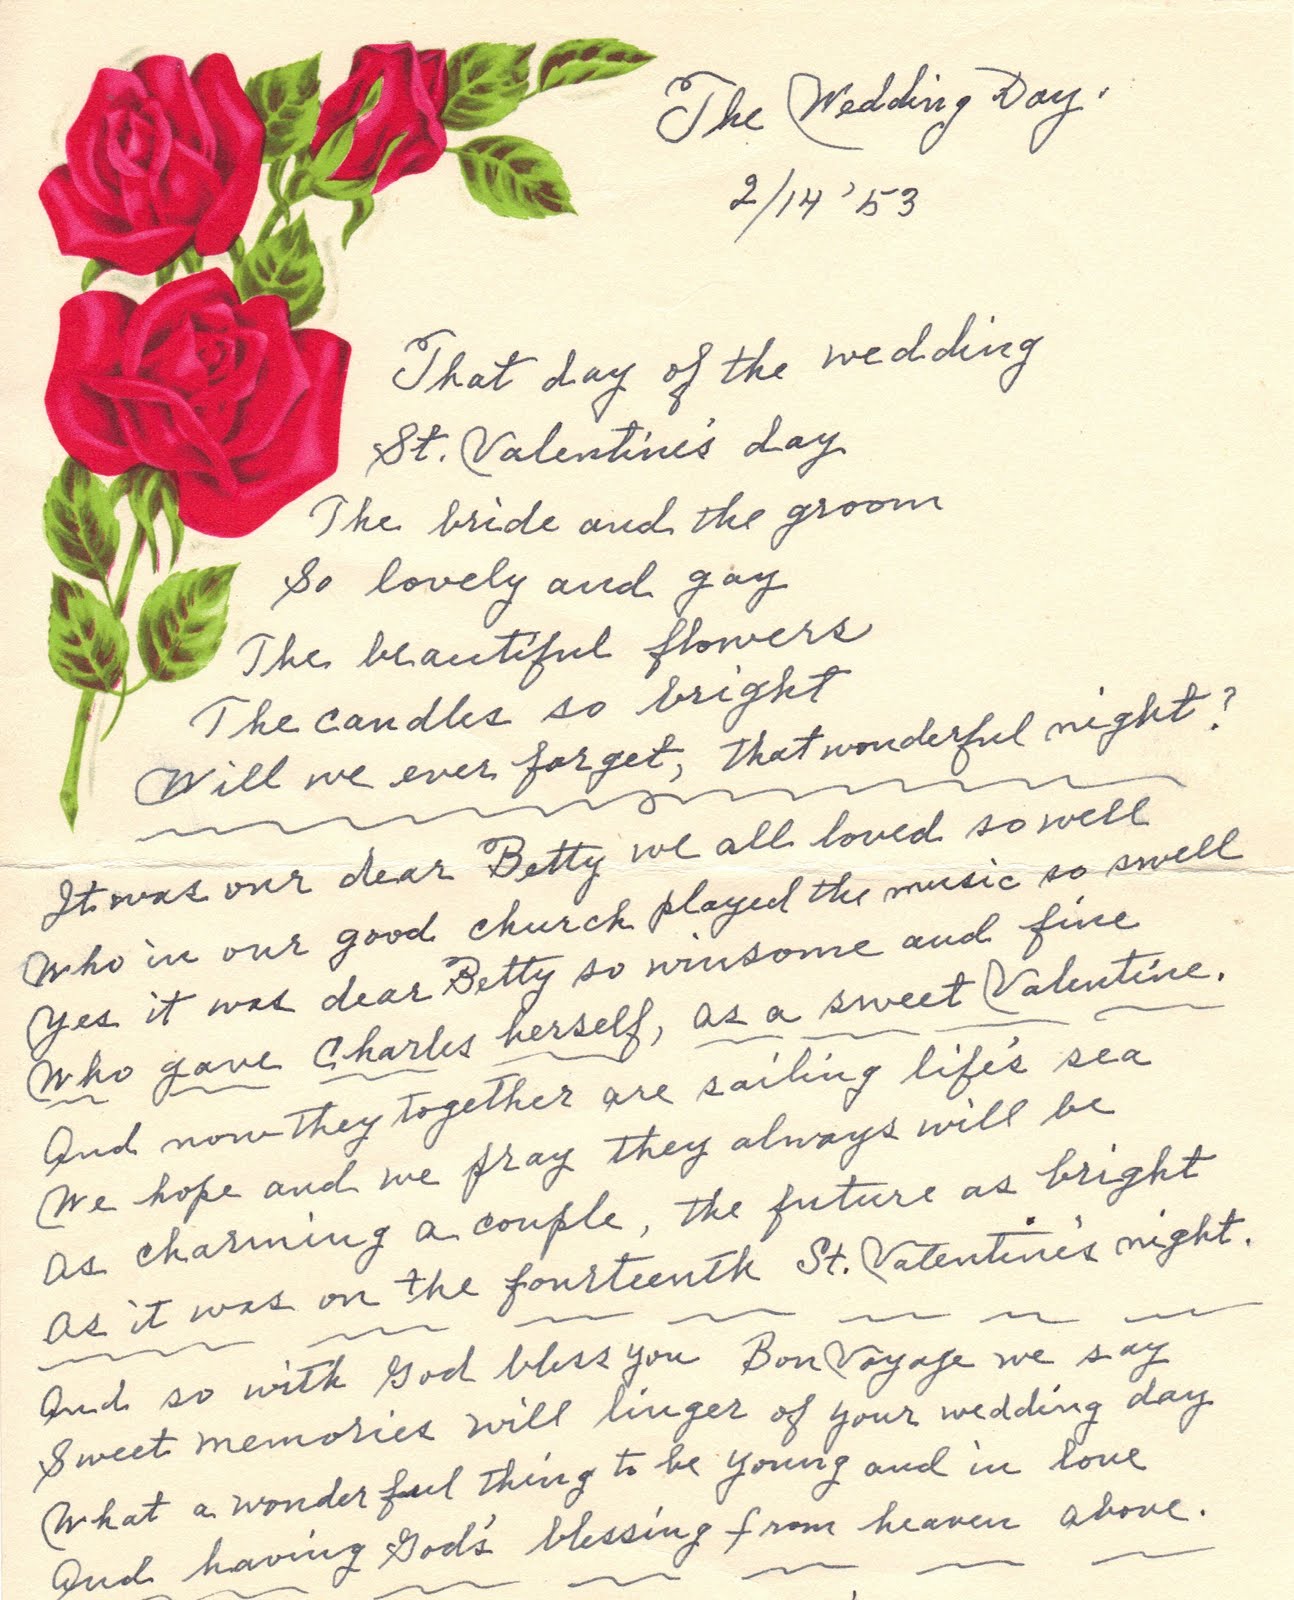 The Wedding Day.
2/14 '53
That day of the wedding
St. Valentine's day
The bride and the groom
So lovely and gay
The beautiful flowers
The candles so bright
Will we ever forget, that wonderful night?
It was our dear Betty we all loved so well
Who in our good church played the music so swell
Yes it was dear Betty so winsome and fine
Who gave Charles herself, as a sweet Valentine.
And now they together are sailing life's sea
We hope and we pray they always will be
As charming a couple, the future as bright
As it was on the fourteenth St. Valentine's night.
And so with God bless you Bon Voyage we say
Sweet memories will linger of your wedding day
What a wonderful thing to be young and in love
And having God's blessing from heaven above.